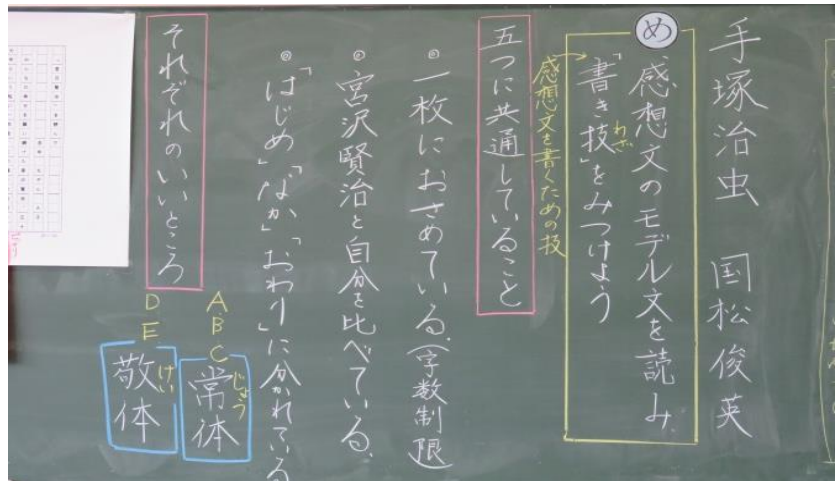 手塚治虫　国松俊英
め
感想文のモデル文を読み、
「書き技」をみつけよう
わざ
感想文を書くための技
五つに共通していること
◎一枚におさめている。(字数制限)
◎宮沢賢治と自分を比べている。
◎「はじめ」「なか」「おわり」に分かれている
それぞれのいいところ
A・B・C
常体
じょう
D E
敬体
けい